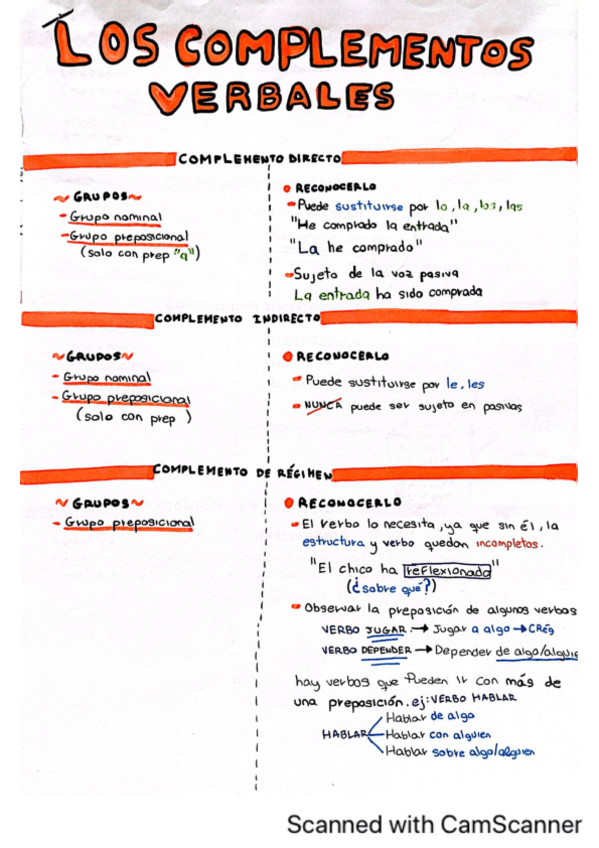 LOS COMPLEMENTOS
VERBALES
COMPLEMENTO DIRECTO
~GRUPOS~
- Grupo nominal
- Grupo preposicional
(solo con prep "a")
RECONOCERLO
- Puede sustituirse por lo, la, los, las
"He comprado la entrada"
"La he comprado"
- Sujeto de la voz pasiva
La entrada ha sido comprada
COMPLEMENTO INDIRECTO
~GRUPOS~
- Grupo nominal
- Grupo preposicional
(solo con prep )
RECONOCERLO
- Puede sustituirse por le, les
- NUNCA puede ser sujeto en pasivas
COMPLEMENTO DE RÉGIMEN
~GRUPOS~
- Grupo preposicional
RECONOCERLO
- El verbo lo necesita, ya que sin él, la
estructura y verbo quedan incompletos.
"El chico ha reflexionado"
(¿sobre qué?)
- Observar la preposición de algunos verbos
VERBO JUGAR → Jugar a algo → CRég
VERBO DEPENDER → Depender de algo/alguie
hay verbos que Pueden ir con más de
una preposición. ej: VERBO HABLAR
Hablar de algo
HABLAR Hablar con alguien
Hablar sobre algo/alguien
Scanned with CamScanner